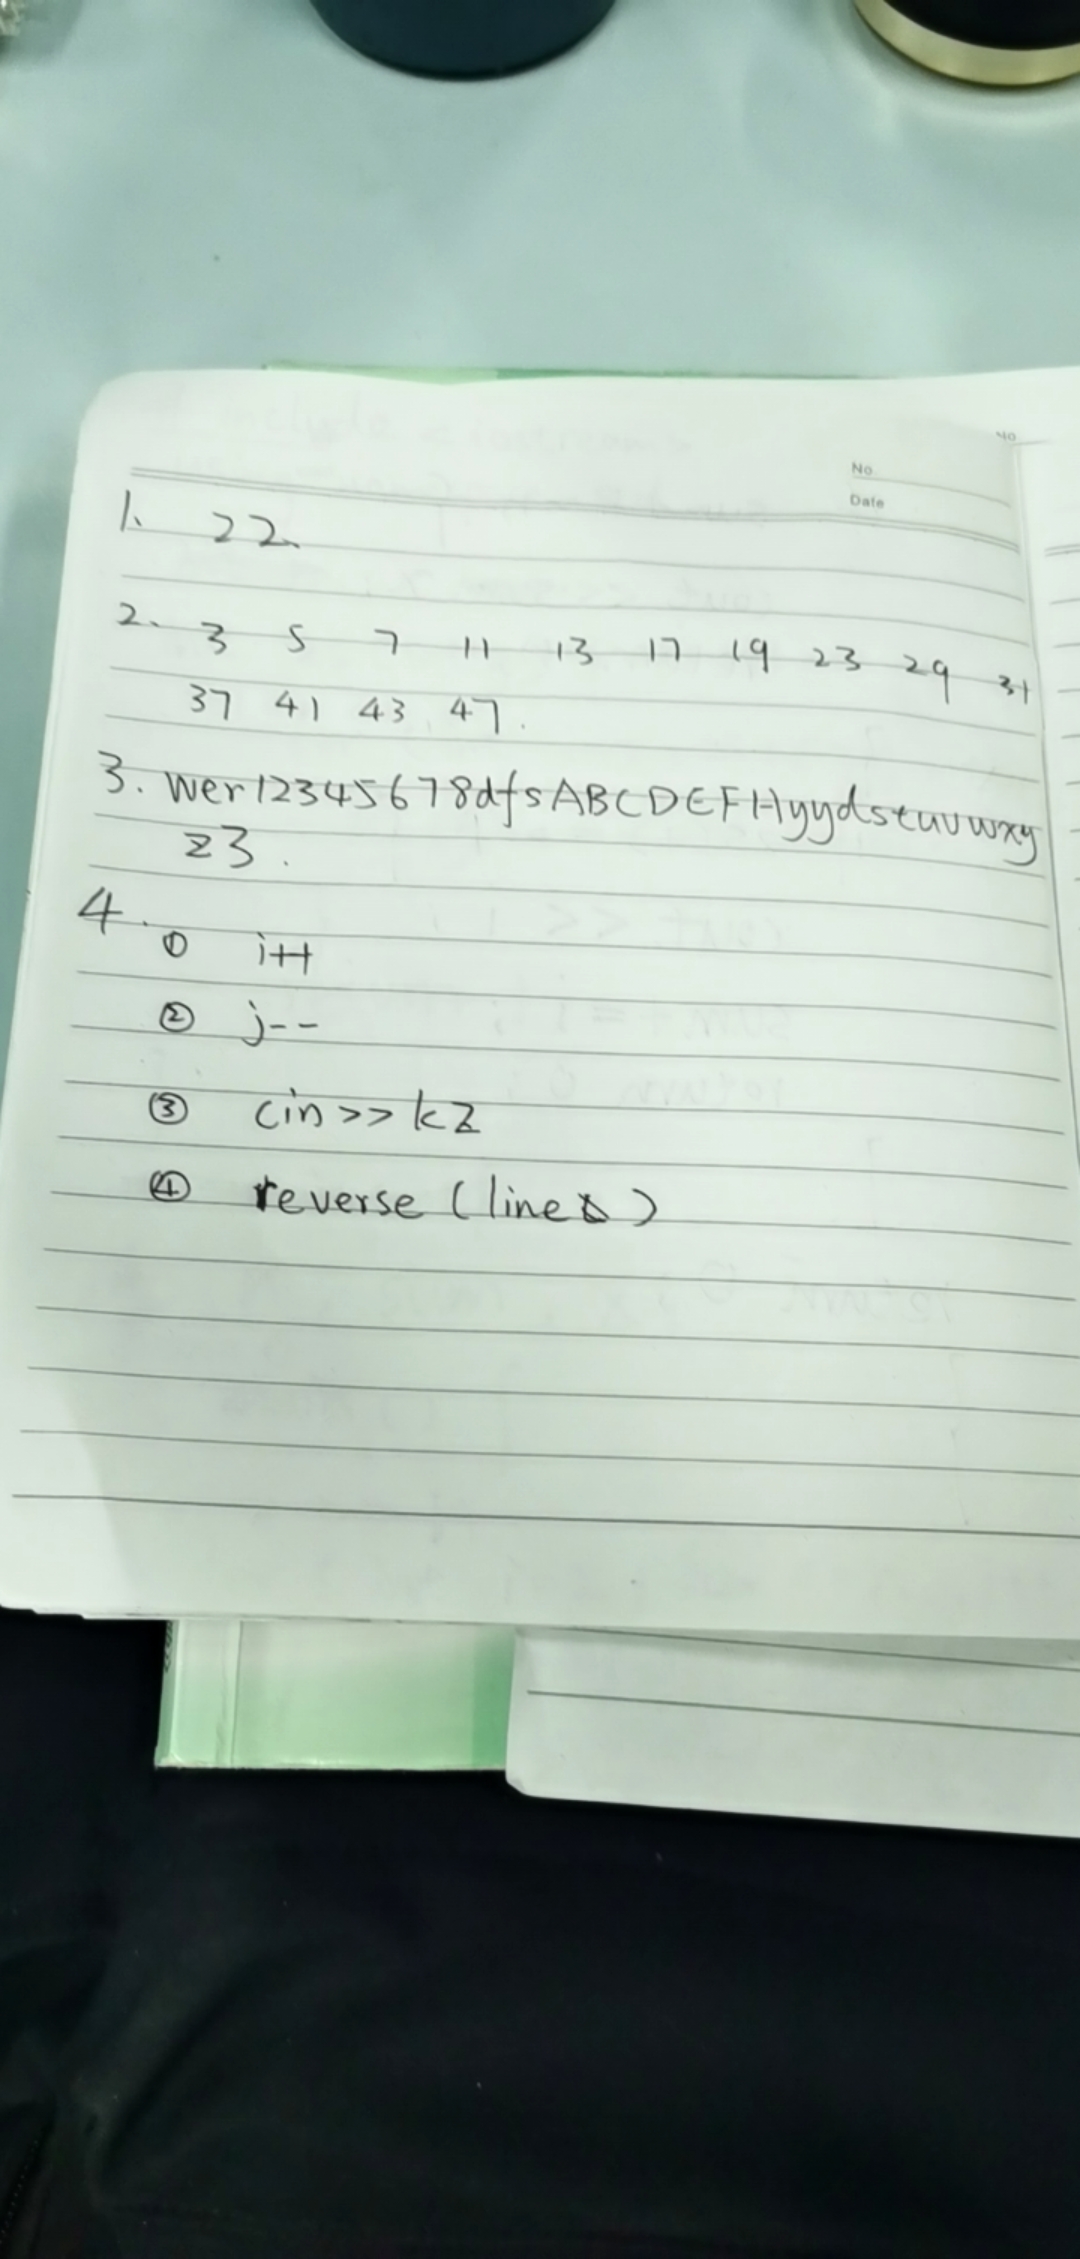 No
No
Date
1. 22.
2. 3 5 7 11 13 17 19 23 29 31
37 41 43 47.
3. wer12345678dfsABCDEFHyydstuvwxy
z3.
4.
① i++
② j--
③ cin>>k2
④ reverse (line)